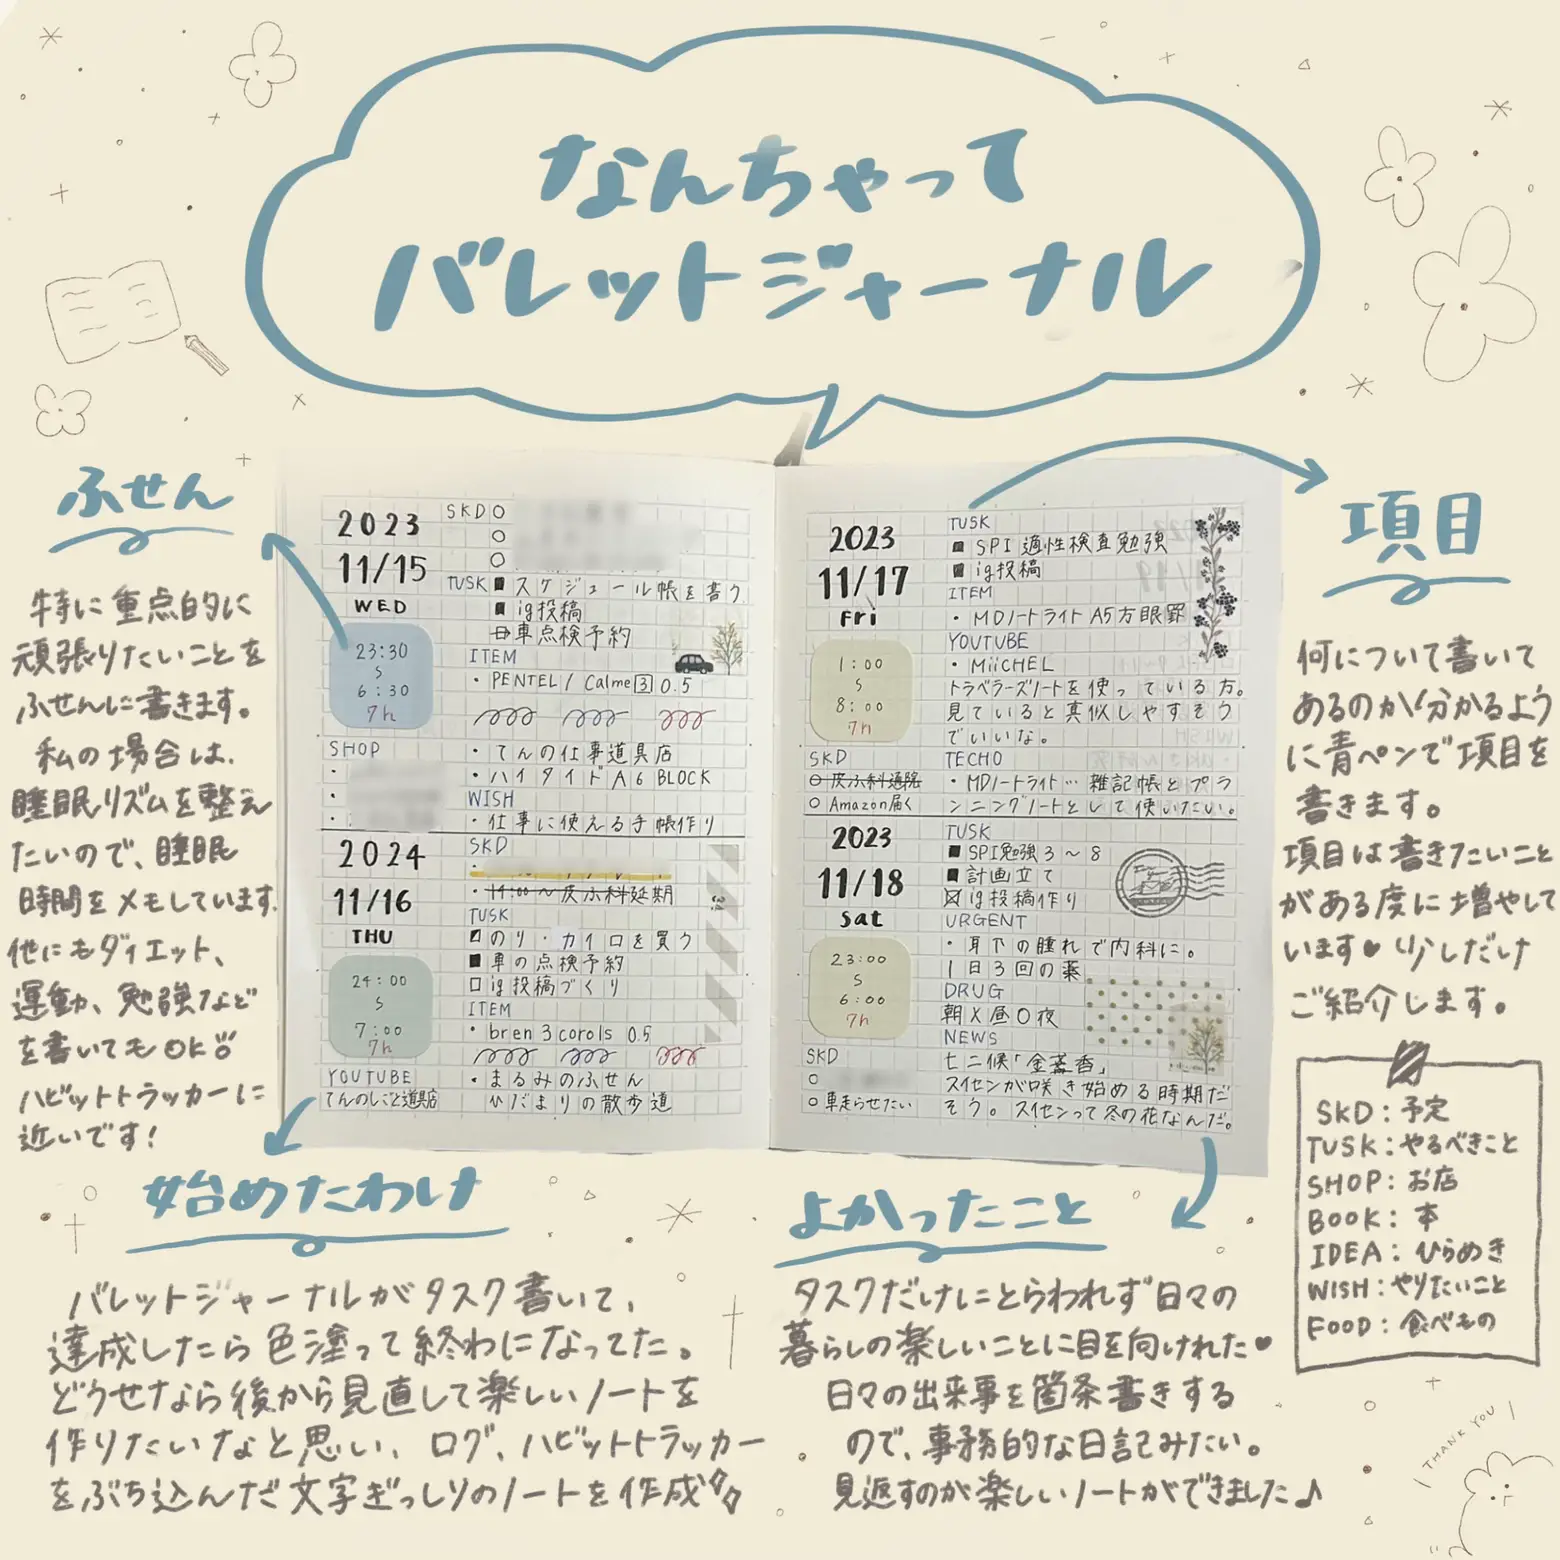 なんちゃって
バレットジャーナル
ふせん
特に重点的に
頑張りたいことを
ふせんに書きます。
私の場合は、
睡眠リズムを整え
たいので、睡眠
時間をメモしています。
他にもダイエット、
運動、勉強など
を書いてもOK
ハビットトラッカーに
近いです!
2023
11/15
WED
23:30
S
6:30
7h
SKD
TUSK ■スケジュール帳を書う
■ig投稿
車点検予約
ITEM
・PENTEL / Calme 3 0.5
SHOP
・てんの仕事道具店
・ハイタイドA6 BLOCK
WISH
・仕事に使える手帳作り
2024
11/16
THU
24:00
S
7:00
7h
SKD
・14:00〜皮ふ科延期
TUSK
のり・カイロを買う
■車の点検予約
□ig投稿づくり
ITEM
・bren 3 corols 0.5
・まるみのふせん
ひだまりの散歩道
YOUTUBE
てんのしごと道具店
2023
11/17
Fri
1:00
S
8:00
7h
TUSK
■SPI適性検査勉強
■ig投稿
ITEM
・MDノートライトA5方眼罫
YOUTUBE
・MiiCHEL
トラベラーズノートを使っている方。
見ていると真似しやすそう
でいいな。
TECHO
・MDノートライト…雑記帳とプラ
ンニングノートとして使いたい。
SKD
○皮ふ科通院
○Amazon届く
2023
11/18
Sat
23:00
S
6:00
7h
TUSK
■SPI勉強3〜8
■計画立て
ig投稿作り
URGENT
・耳下の腫れで内科に。
1日3回の薬
DRUG
朝X昼○夜
NEWS
七二候「金盞香」
スイセンが咲き始める時期だ
そう。スイセンって冬の花なんだ。
SKD
○車走らせたい
項目
何について書いて
あるのか分かるよう
に青ペンで項目を
書きます。
項目は書きたいこと
がある度に増やして
います♥少しだけ
ご紹介します。
SKD:予定
TUSK:やるべきこと
SHOP:お店
BOOK:本
IDEA:ひらめき
WISH:やりたいこと
FOOD:食べもの
始めたわけ
バレットジャーナルがタスク書いて、
達成したら色塗って終わになってた。
どうせなら後から見直して楽しいノートを
作りたいなと思い、ログ、ハビットトラッカー
をぶち込んだ文字ぎっしりのノートを作成
よかったこと
タスクだけにとらわれず日々の
暮らしの楽しいことに目を向けれた♥
日々の出来事を箇条書きする
ので、事務的な日記みたい。
見返すのが楽しいノートができました♪
THANK YOU